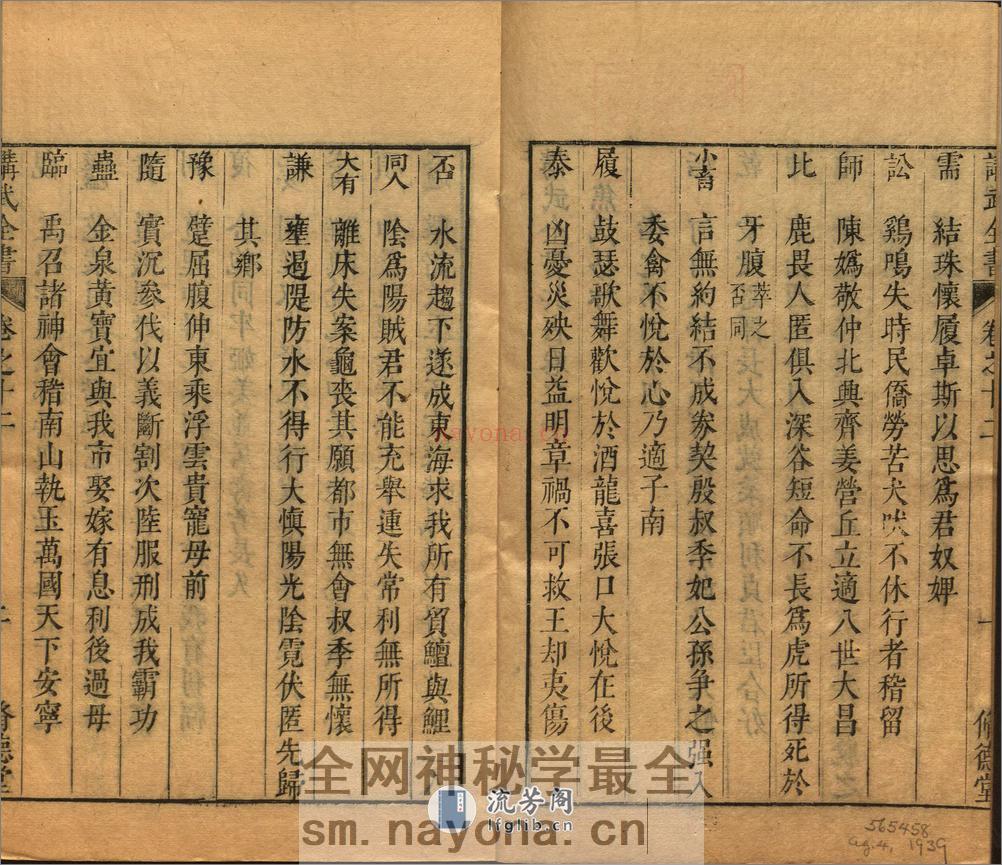 講武全書 卷之十二 一 脩德堂
需 結珠懷履卓斯以思爲君奴婢
訟 鷄鳴失時民僑勞苦犬吠不休行者稽留
師 陳嬀敬仲北興齊姜營丘立適八世大昌
比 鹿畏人匿俱入深谷短命不長爲虎所得死於
牙腹 萃之否同
小畜 言無約結不成券契殷叔季妃公孫爭之强入
委禽不悅於心乃適子南
履 鼓瑟歌舞歡悅於酒龍喜張口大悅在後
泰 凶憂災殃日益明章禍不可救王却夷傷
否 水流趨下遂成東海求我所有買鱣與鯉
同人 陰爲陽賊君不能充舉運失常利無所得
大有 離床失案龜喪其願都市無會叔季無懷
謙 壅遏隄防水不得行大愼陽光陰霓伏匿走歸
其鄉
豫 蹇屈腹伸東乘浮雲貴寵母前
隨 實沉參代以義斷割次陸服刑成我霸功
蠱 金泉黃寶宜與我市娶嫁有息利後過母
臨 禹召諸神會稽南山執玉萬國天下安寧
講武全書 卷之十二 二 脩德堂
nayona.cn
全网神秘学最全
sm.nayona.cn
流芳阁
lfglib.cn
565458
ag. 4, 1939